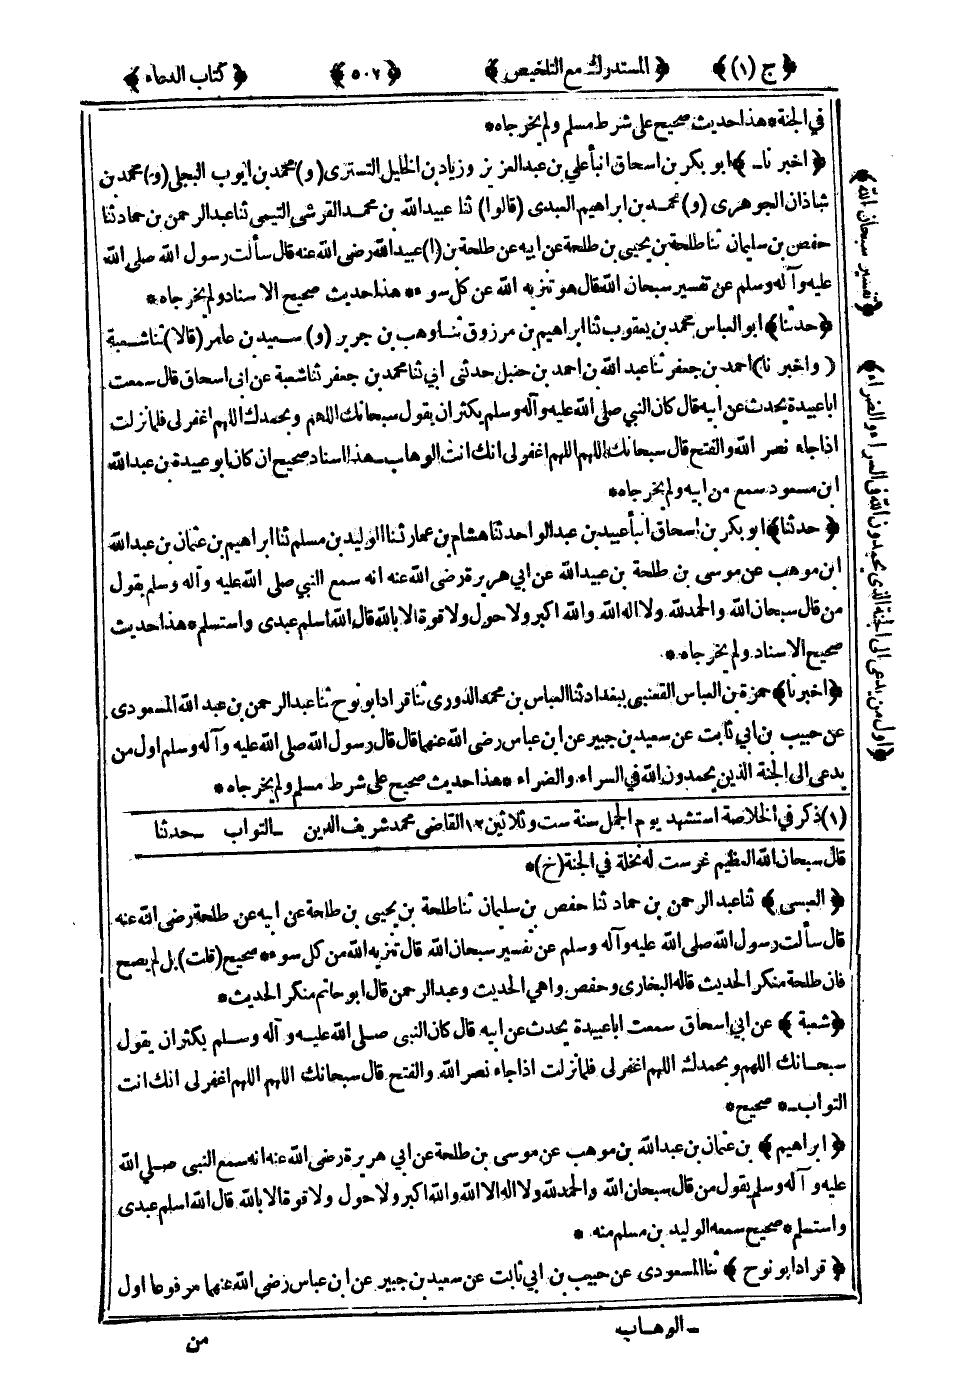 ﴿ ج (١) ﴾ ﴿ المستدرك مع التلخيص ﴾ ﴿ ٥٠٢ ﴾ ﴿ كتاب الدعاء ﴾
في الجنة * هذا حديث صحيح على شرط مسلم ولم يخرجاه *
﴿ اخبرنا ﴾ ابو بكر بن اسحاق انبأ علي بن عبد العزيز وزياد بن الخليل التسترى (و) محمد بن ايوب البجلي (و) محمد بن
شاذان الجوهرى (و) محمد بن ابراهيم العبدى (قالوا) ثنا عبيد الله بن محمد القرشي التيمى ثنا عبد الرحمن بن حماد ثنا
حفص بن سليمان ثنا طلحة بن يحيى بن طلحة عن ابيه عن طلحة بن (١) عبيد الله رضى الله عنه قال سألت رسول الله صلى الله
عليه وآله وسلم عن تفسير سبحان الله قال هو تنزيه الله عن كل سوء * هذا حديث صحيح الاسناد ولم يخرجاه *
﴿ حدثنا ﴾ ابو العباس محمد بن يعقوب ثنا ابراهيم بن مرزوق ثنا وهب بن جرير (و) سعيد بن عامر (قالا) ثنا شعبة
(واخبرنا) احمد بن جعفر ثنا عبد الله بن احمد بن حنبل حدثنى ابي ثنا محمد بن جعفر ثنا شعبة عن ابى اسحاق قال سمعت
ابا عبيدة يحدث عن ابيه قال كان النبي صلى الله عليه وآله وسلم يكثر ان يقول سبحانك اللهم وبحمدك اللهم اغفر لى فلما نزلت
اذا جاء نصر الله والفتح قال سبحانك اللهم اللهم اغفر لى انك انت الوهاب ـ هذا اسناد صحيح ان كان ابو عبيدة بن عبد الله
ابن مسعود سمع من ابيه ولم يخرجاه *
﴿ حدثنا ﴾ ابو بكر بن اسحاق انبأ عبيد بن عبد الواحد ثنا هشام بن عمار ثنا الوليد بن مسلم ثنا ابراهيم بن عثمان بن عبد الله
ابن موهب عن موسى بن طلحة بن عبيد الله عن ابي هريرة رضى الله عنه انه سمع النبي صلى الله عليه وآله وسلم يقول
من قال سبحان الله والحمد لله ولا اله الله والله اكبر ولا حول ولا قوة الا بالله قال الله اسلم عبدى واستسلم * هذا حديث
صحيح الاسناد ولم يخرجاه *
﴿ اخبرنا ﴾ حمزة بن العباس القعنبى ببغداد ثنا العباس بن محمد الدورى ثنا قراد ابو نوح ثنا عبد الرحمن بن عبد الله المسعودى
عن حبيب بن ابي ثابت عن سعيد بن جبير عن ابن عباس رضى الله عنهما قال قال رسول الله صلى الله عليه وآله وسلم اول من
يدعى الى الجنة الذين يحمدون الله في السراء والضراء * هذا حديث صحيح على شرط مسلم ولم يخرجاه *
(١) ذكر في الخلاصة استشهد يوم الجمل سنة ست وثلاثين ١٢ القاضى محمد شريف الدين ـ التواب ـ حدثنا
قال سبحان الله العظيم غرست له نخلة في الجنة (خ) *
﴿ العبسى ﴾ ثنا عبد الرحمن بن حماد ثنا حفص بن سليمان ثنا طلحة بن يحيى بن طلحة عن ابيه عن طلحة رضى الله عنه
قال سألت رسول الله صلى الله عليه وآله وسلم عن تفسير سبحان الله قال تنزيه الله من كل سوء * صحيح (قلت) بل لم يصح
فان طلحة منكر الحديث قاله البخارى وحفص واهي الحديث وعبد الرحمن قال ابو حاتم منكر الحديث *
﴿ شعبة ﴾ عن ابي اسحاق سمعت ابا عبيدة يحدث عن ابيه قال كان النبى صلى الله عليه وآله وسلم يكثر ان يقول
سبحانك اللهم وبحمدك اللهم اغفر لى فلما نزلت اذا جاء نصر الله والفتح قال سبحانك اللهم اللهم اغفر لى انك انت
التواب ـ * صحيح *
﴿ ابراهيم ﴾ بن عثمان بن عبد الله بن موهب عن موسى بن طلحة عن ابي هريرة رضى الله عنه انه سمع النبى صلى الله
عليه وآله وسلم يقول من قال سبحان الله والحمد لله ولا اله الا الله والله اكبر ولا حول ولا قوة الا بالله قال الله اسلم عبدى
واستسلم * صحيح سمعه الوليد بن مسلم منه *
﴿ قراد ابو نوح ﴾ ثنا المسعودى عن حبيب بن ابي ثابت عن سعيد بن جبير عن ابن عباس رضى الله عنهما مرفوعا اول
ـ الوهاب
من
﴿ تفسير سبحان الله ﴾
﴿ اول من يدعى الى الجنة الذى يحمدون الله فى السراء والضراء ﴾